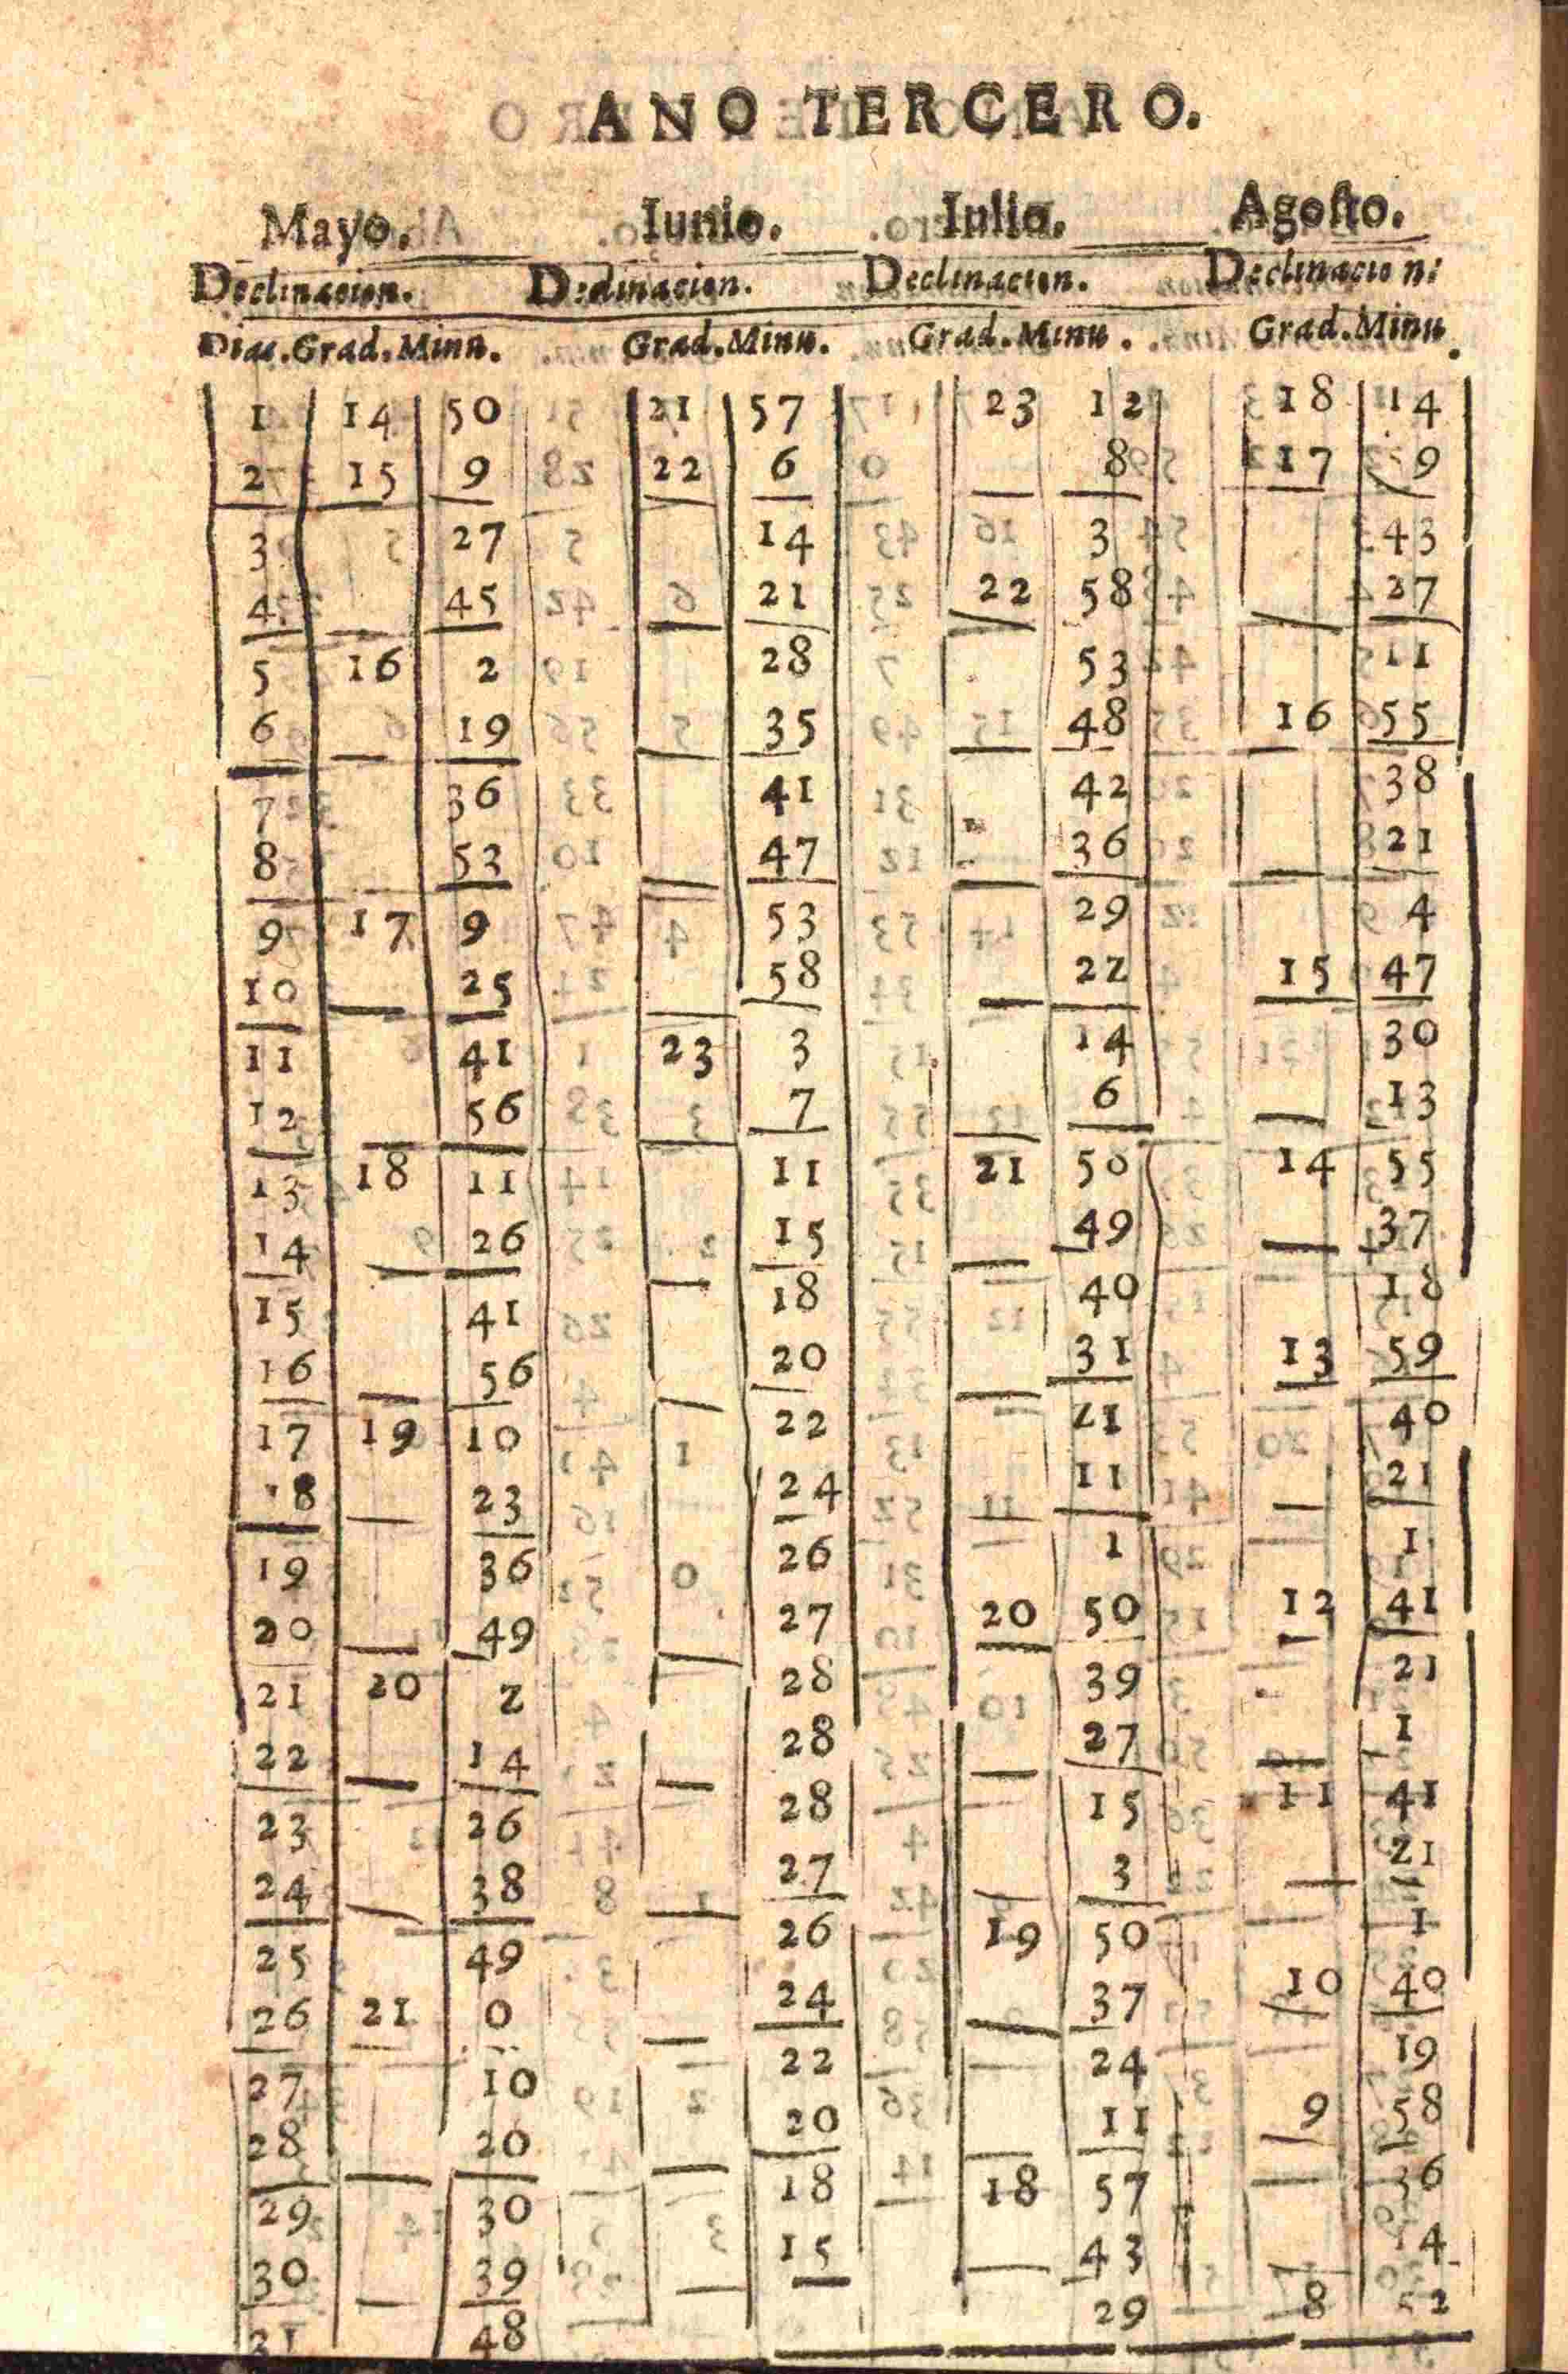 ANO TERCERO.
Mayo. Iunio. Iulio. Agosto.
Declinacion. Declinacion. Declinacion. Declinacion:
Dias. Grad. Minu. Grad. Minu. Grad. Minu. Grad. Minu.
1 14 50 21 57 23 12 18 14
2 15 9 22 6 8 17 59
3 27 14 3 43
4 45 21 22 58 27
5 16 2 28 53 11
6 19 35 48 16 55
7 36 41 42 38
8 53 47 36 21
9 17 9 53 29 4
10 25 58 22 15 47
11 41 23 3 14 30
12 56 7 6 13
13 18 11 11 21 58 14 55
14 26 15 49 37
15 41 18 40 18
16 56 20 31 13 59
17 19 10 22 21 40
18 23 24 11 21
19 36 26 1 1
20 49 27 20 50 12 41
21 20 2 28 39 21
22 14 28 27 1
23 26 28 15 11 41
24 38 27 3 21
25 49 26 19 50 1
26 21 0 24 37 10 40
27 10 22 24 19
28 20 20 11 9 58
29 30 18 18 57 36
30 39 15 43 14
31 48 29 8 52